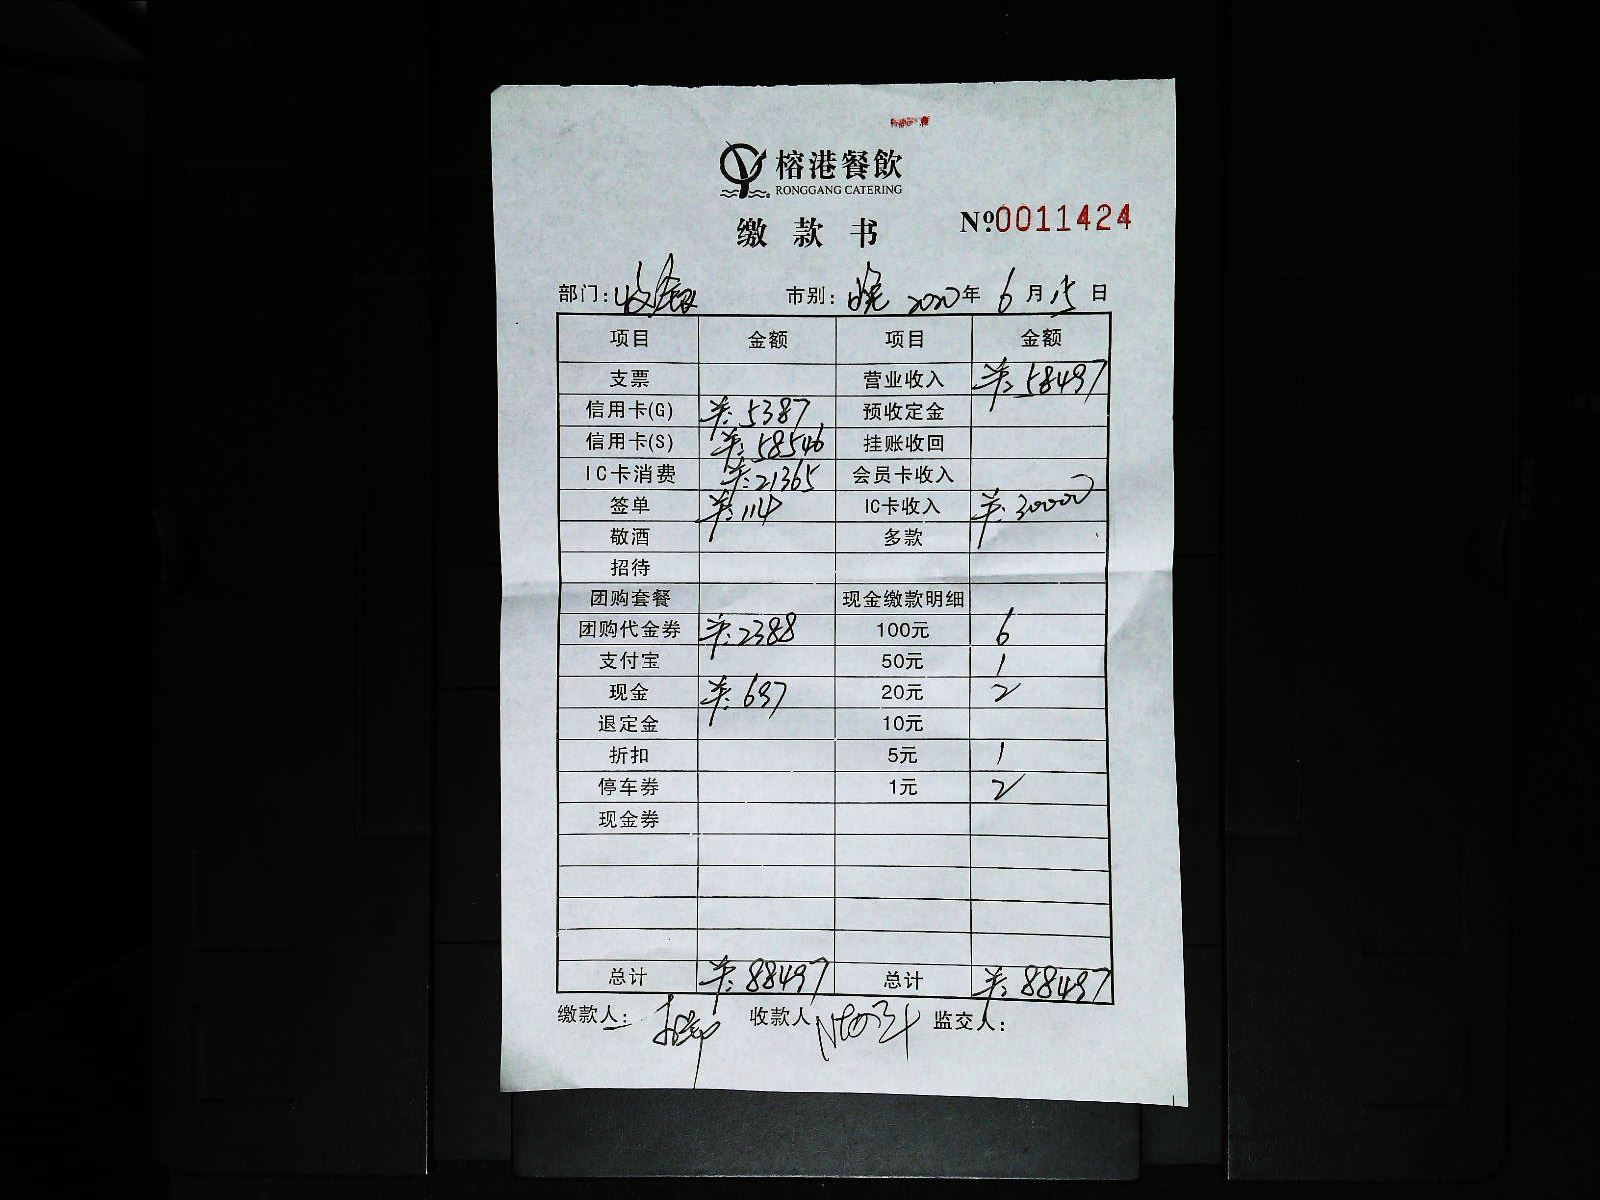 榕港餐飲
RONGGANG CATERING
缴款书
Nº0011424
部门:收银 市别:晚 2020年6月15日
项目 金额 项目 金额
支票 营业收入 羊:58497
信用卡(G) 羊:5387 预收定金
信用卡(S) 羊:58546 挂账收回
IC卡消费 羊:21365 会员卡收入
签单 羊:114 IC卡收入 羊:30000
敬酒 多款
招待
团购套餐 现金缴款明细
团购代金券 羊:2388 100元 6
支付宝 50元 1
现金 羊:697 20元 2
退定金 10元
折扣 5元 1
停车券 1元 2
现金券
总计 羊:88497 总计 羊:88497
缴款人: 收款人 监交人: